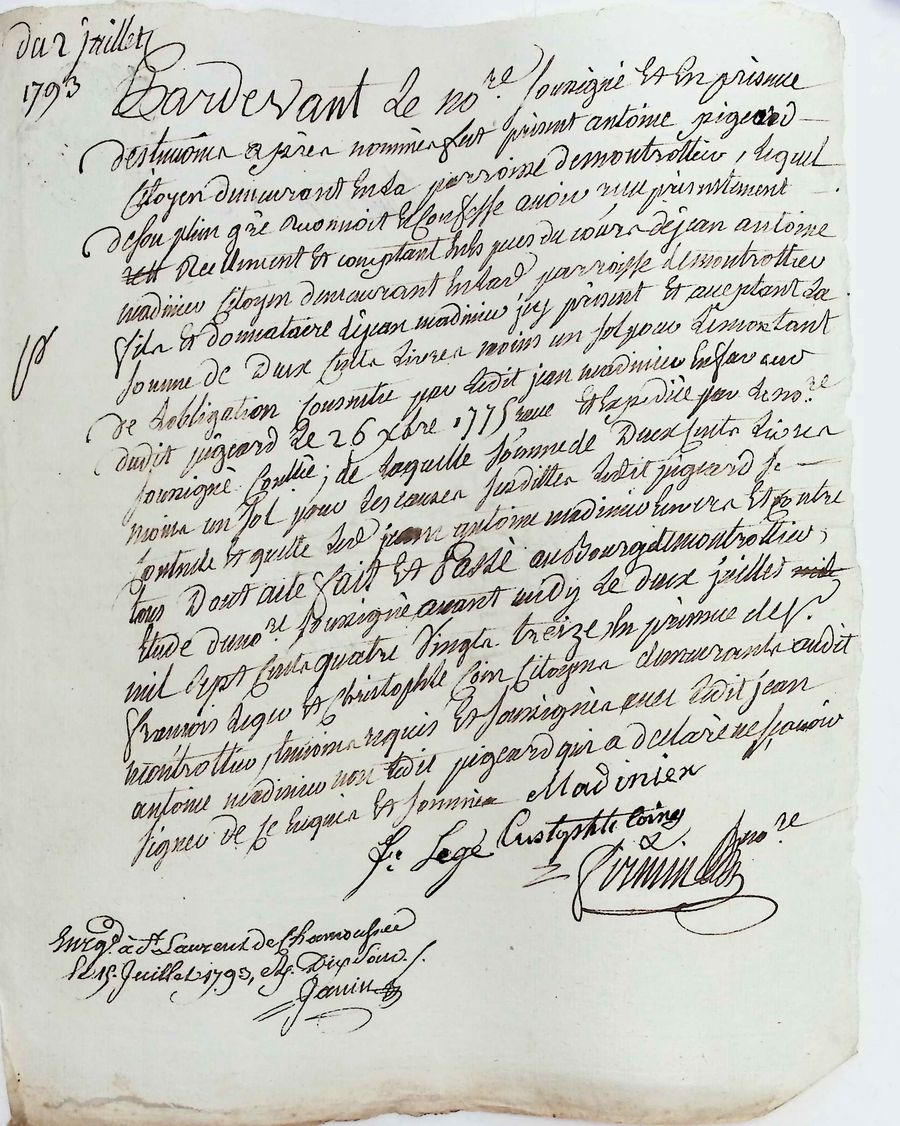 du 2 juillet
1793
Pardevant Le no.re soussigné Et En présence
des temoins après nommés fut présent antoine pigeard
Citoyen demeurant En la parroisse de montrottier, lequel
de son plein gré Reconnoit Et Confesse avoir reçu présentement
Reellement Et comptant En Espèces du cours de jean antoine
madinier Citoyen demeurant En lad. parroisse de montrottier
fils Et donnataire de jean madinier icy présent Et acceptant La
somme de Deux Cents Livres moins un sol pour Le montant
De Lobligation Consentie par Ledit jean madinier En faveur
dudit pigeard Le 26 xbre 1775 reçue Et Expediée par Le no.re
soussigné Controllée; de Laquelle somme de Deux Cents Livres
moins un sol pour Les causes susdittes Ledit pigeard se
Contente Et quitte Led. jean antoine madinier Envers Et contre
tous Dont acte fait Et Passé au Bourg de montrottier,
Etude du no.re soussigné avant midy Le deux juillet
mil sept Cents quatre Vingts treize En présence de S.r
francois Leger Et Christophle Coin Citoyens demeurants audit
montrottier, temoins requis Et soussignés avec Ledit jean
antoine madinier non Ledit pigeard qui a déclaré ne sçavoir
signer de ce Enquis Et sommé Madinier
fr Legé Cristophle Coing
no.re
Enreg.é à St. Laurent de Chamousset
Le 15. Juillet 1793, Dix Sous
Janin